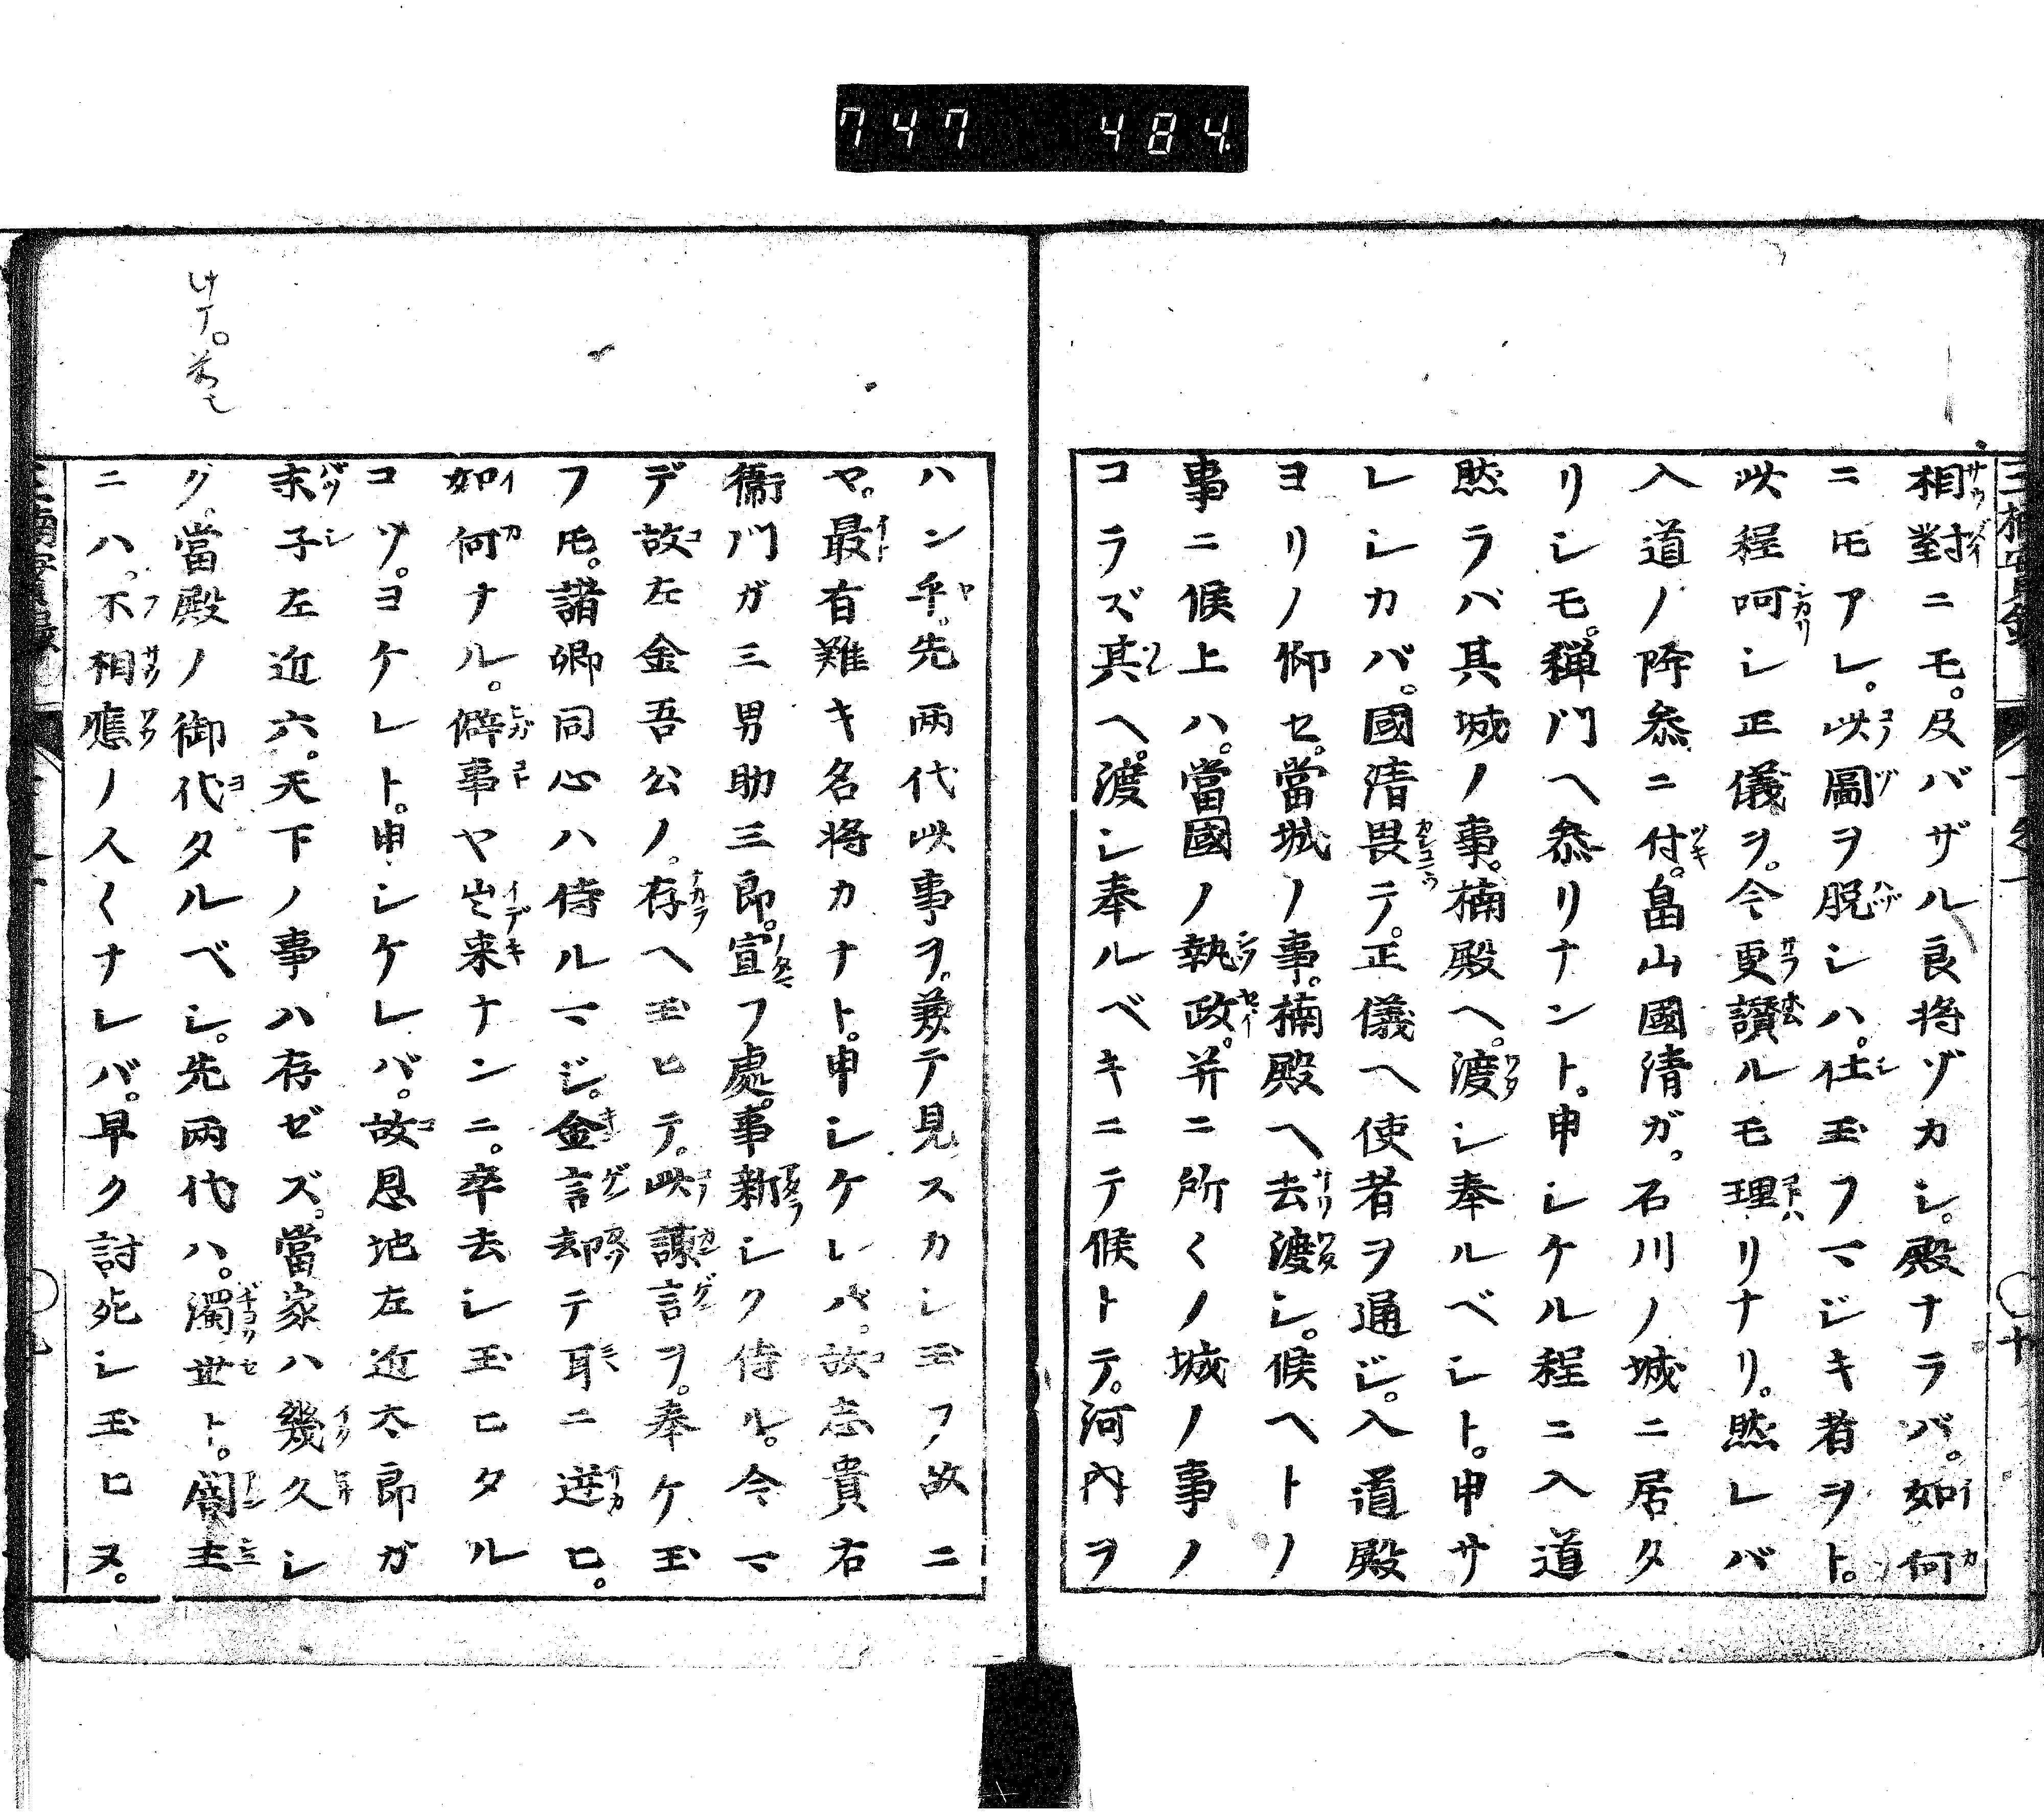 747 484
相對ニモ。及バザル良将ゾカシ。殿ナラバ。如何
ニモアレ。此圖ヲ脱シハ。仕玉フマジキ者ヲト。
此程呵シ正儀ヲ。今更讃ルモ理リナリ。然レバ
入道ノ降叅ニ付。畠山國清ガ。石川ノ城ニ居タ
リシモ。禅門ヘ叅リナント。申シケル程ニ入道
然ラバ其城ノ事。楠殿ヘ。渡シ奉ルベシト。申サ
レシカバ。國清畏テ。正儀ヘ使者ヲ通ジ。入道殿
ヨリノ仰セ。當城ノ事。楠殿ヘ去渡シ。候ヘトノ
事ニ候上ハ。當國ノ執政。并ニ所〱ノ城ノ事ノ
コラズ其ヘ。渡シ奉ルベキニテ候トテ。河内ヲ
ハン乎。先兩代此事ヲ。兼テ見スカシ玉フ故ニ
ヤ。最有難キ名将カナト。申シケレバ。故志貴右
衞門ガ三男助三郎。宣フ處。事新シク侍ル。今マ
デ故左金吾公ノ。存ヘ玉ヒテ。此諫言ヲ。奉ケ玉
フ𪜈。諸卿同心ハ侍ルマジ。金言却テ耳ニ逆ヒ。
如何ナル。僻事ヤ出来ナンニ。卒去シ玉ヒタル
コソ。ヨケレト。申シケレバ。故恩地左近太郎ガ
末子左近六。天下ノ事ハ存ゼズ。當家ハ幾久シ
グ。當殿ノ御代タルベシ。先兩代ハ。濁世ト。闇主
ニハ。不相應ノ人〱ナレバ。早ク討死シ玉ヒヌ。